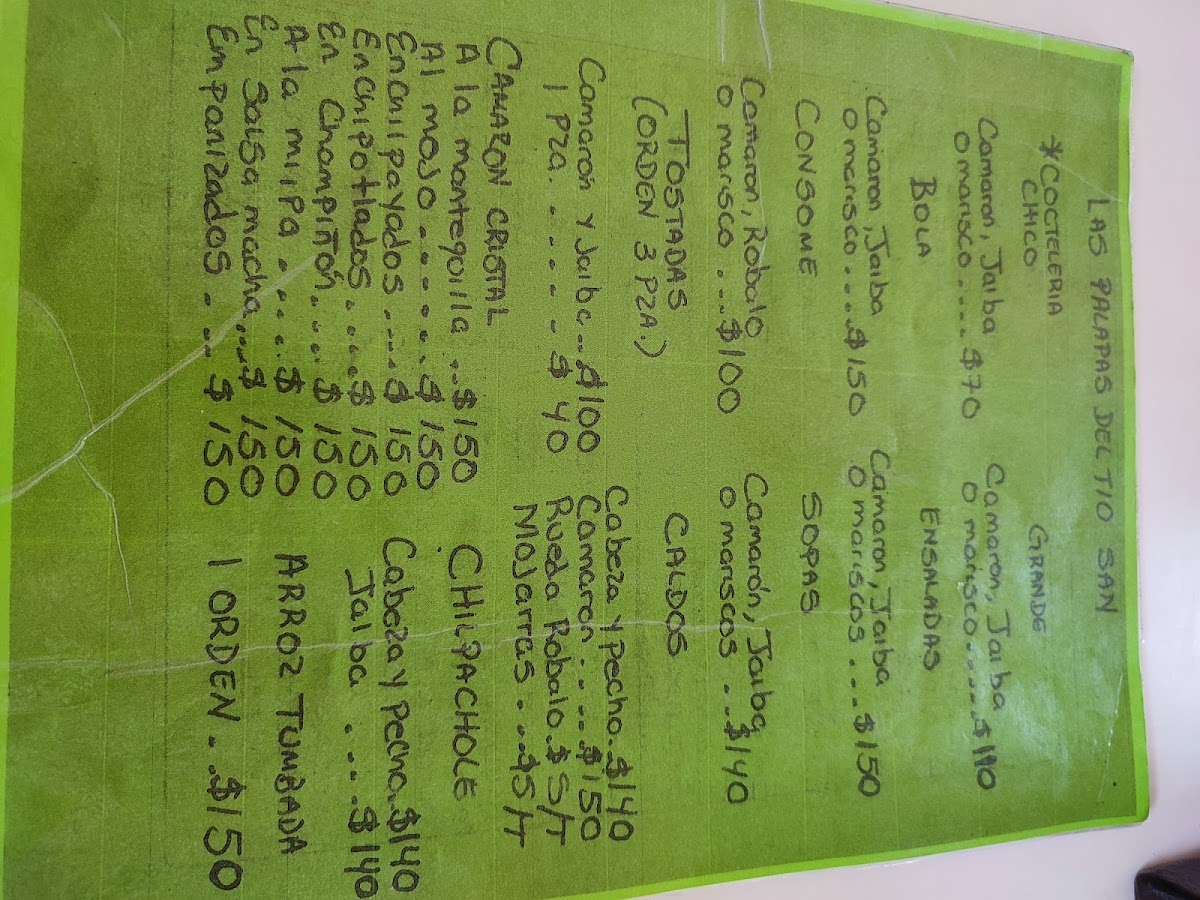 LAS PALAPAS DEL TIO SAN
*COCTELERIA
CHICO
Camaron, Jaiba
o marisco.... $70
GRANDE
Camaron, Jaiba
o marisco..... $110
BOLA
Camaron, Jaiba
o marisco....$150
ENSALADAS
Camaron, Jaiba
o mariscos...$150
CONSOME
Camaron, Robalo
o marisco...$100
SOPAS
Camarón, Jaiba
o mariscos..$140
TOSTADAS
(ORDEN 3 PZA.)
Camaron y Jaiba..$100
1 Pza...... $ 40
CALDOS
Cabeza y pecho.$140
Camaron.....$150
Rueda Robalo.$ S/T
Mojarras....$S/T
CAMARON CRISTAL
A la mantequilla ..$150
Al mojo.......$ 150
Enchilpayados....$ 150
Enchipotlados....$ 150
En Champiñón....$ 150
A la miipa.....$ 150
En Salsa macha...$ 150
Empanizados....$ 150
CHILPACHOLE
Cabeza y Pecho.$140
Jaiba ....$140
ARROZ TUMBADA
1 ORDEN..$150